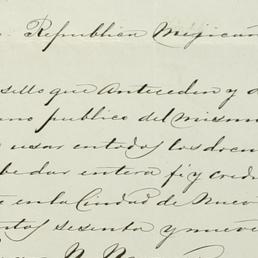 Republica Mejicana
sello que anteceden y
no publico del mismo
usar en todos los docu
be dar entera fé y credi
en la Ciudad de Nuev
ntos sesenta y nueve